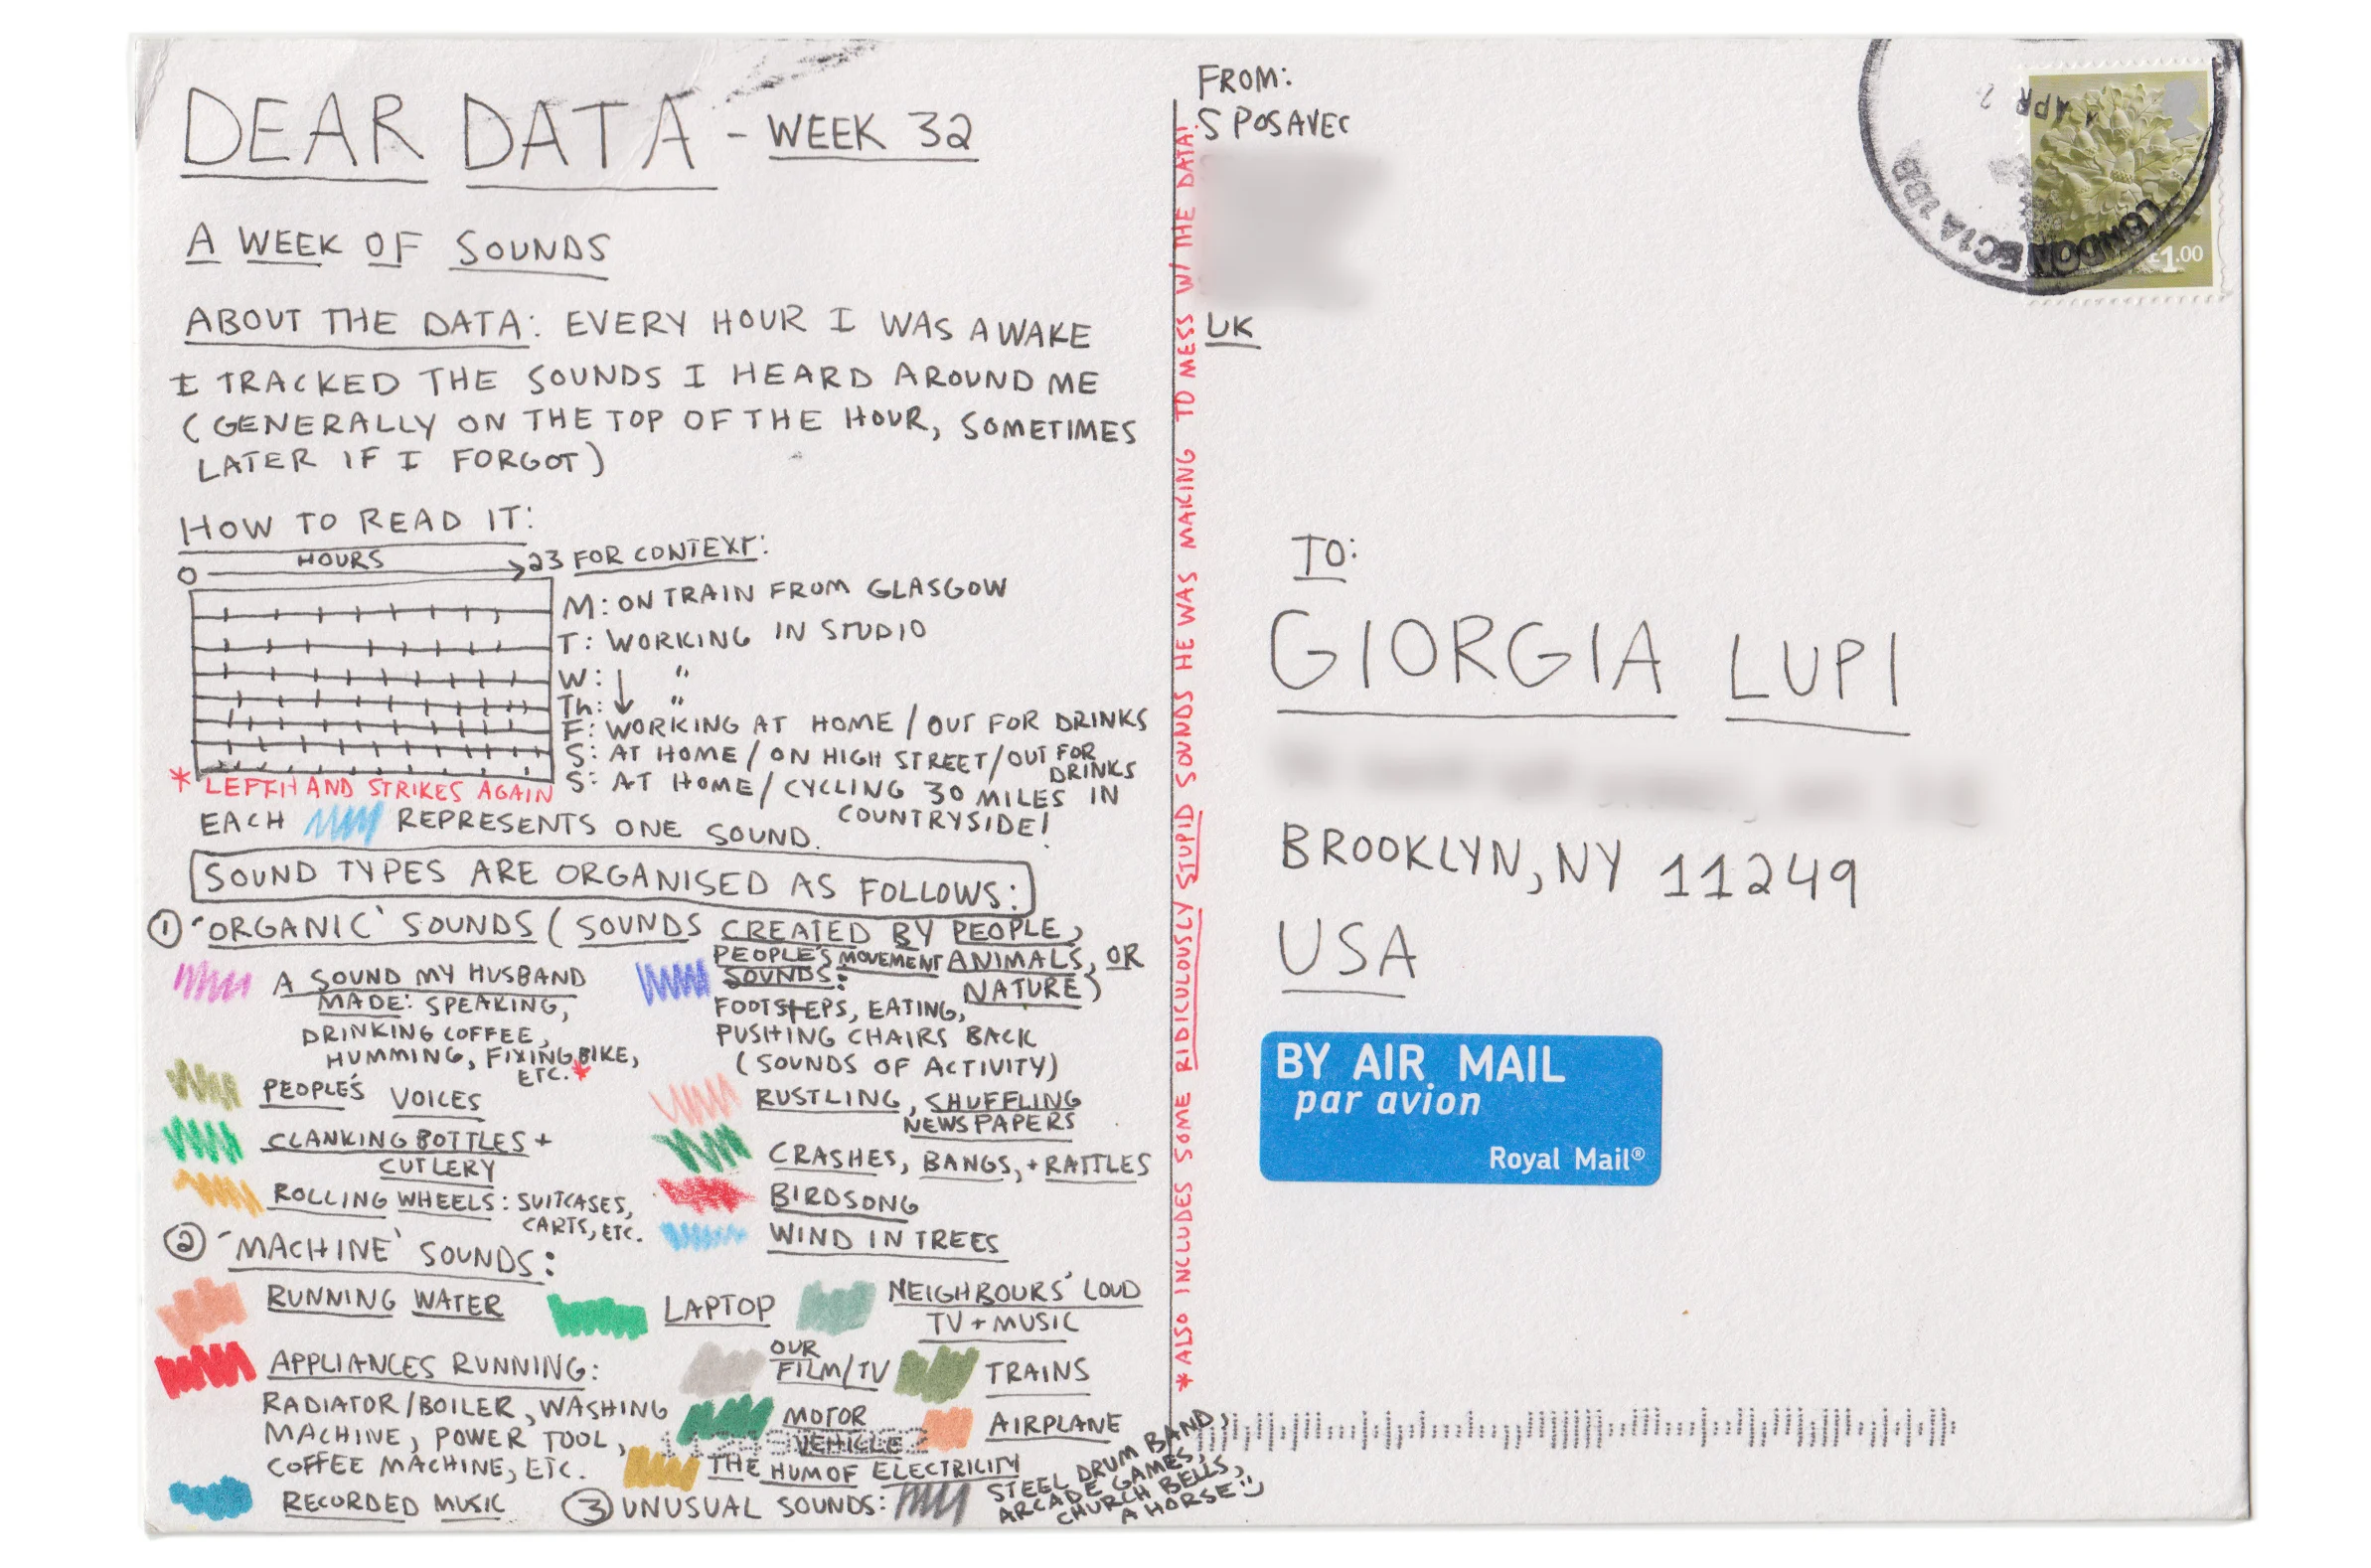 DEAR DATA - WEEK 32
A WEEK OF SOUNDS
ABOUT THE DATA: EVERY HOUR I WAS AWAKE
I TRACKED THE SOUNDS I HEARD AROUND ME
(GENERALLY ON THE TOP OF THE HOUR, SOMETIMES
LATER IF I FORGOT)
HOW TO READ IT:
HOURS
0 23
FOR CONTEXT:
M: ON TRAIN FROM GLASGOW
T: WORKING IN STUDIO
W: ↓ "
Th: "
F: WORKING AT HOME / OUT FOR DRINKS
S: AT HOME / ON HIGH STREET / OUT FOR
DRINKS
S: AT HOME / CYCLING 30 MILES IN
COUNTRYSIDE!
* LEFTHAND STRIKES AGAIN
EACH REPRESENTS ONE SOUND.
SOUND TYPES ARE ORGANISED AS FOLLOWS:
① 'ORGANIC' SOUNDS (SOUNDS CREATED BY PEOPLE,
ANIMALS, OR
NATURE)
A SOUND MY HUSBAND
MADE: SPEAKING,
DRINKING COFFEE,
HUMMING, FIXING BIKE,
ETC.*
PEOPLE'S MOVEMENT
SOUNDS:
FOOTSTEPS, EATING,
PUSHING CHAIRS BACK
(SOUNDS OF ACTIVITY)
PEOPLE'S VOICES
RUSTLING, SHUFFLING
NEWSPAPERS
CLANKING BOTTLES +
CUTLERY
CRASHES, BANGS, + RATTLES
ROLLING WHEELS: SUITCASES,
CARTS, ETC.
BIRDSONG
WIND IN TREES
② 'MACHINE' SOUNDS:
RUNNING WATER
LAPTOP
NEIGHBOURS' LOUD
TV + MUSIC
APPLIANCES RUNNING:
RADIATOR/BOILER, WASHING
MACHINE, POWER TOOL,
COFFEE MACHINE, ETC.
OUR
FILM/TV
TRAINS
MOTOR
VEHICLE
AIRPLANE
THE HUM OF ELECTRICITY
RECORDED MUSIC
③ UNUSUAL SOUNDS:
STEEL DRUM BAND,
ARCADE GAMES,
CHURCH BELLS,
A HORSE
* ALSO INCLUDES SOME RIDICULOUSLY STUPID SOUNDS HE WAS MAKING TO MESS W/ THE DATA!
FROM:
S POSAVEC
UK
LONDON EC1A 1BB
APR
£1.00
TO:
GIORGIA LUPI
BROOKLYN, NY 11249
USA
BY AIR MAIL
par avion
Royal Mail®